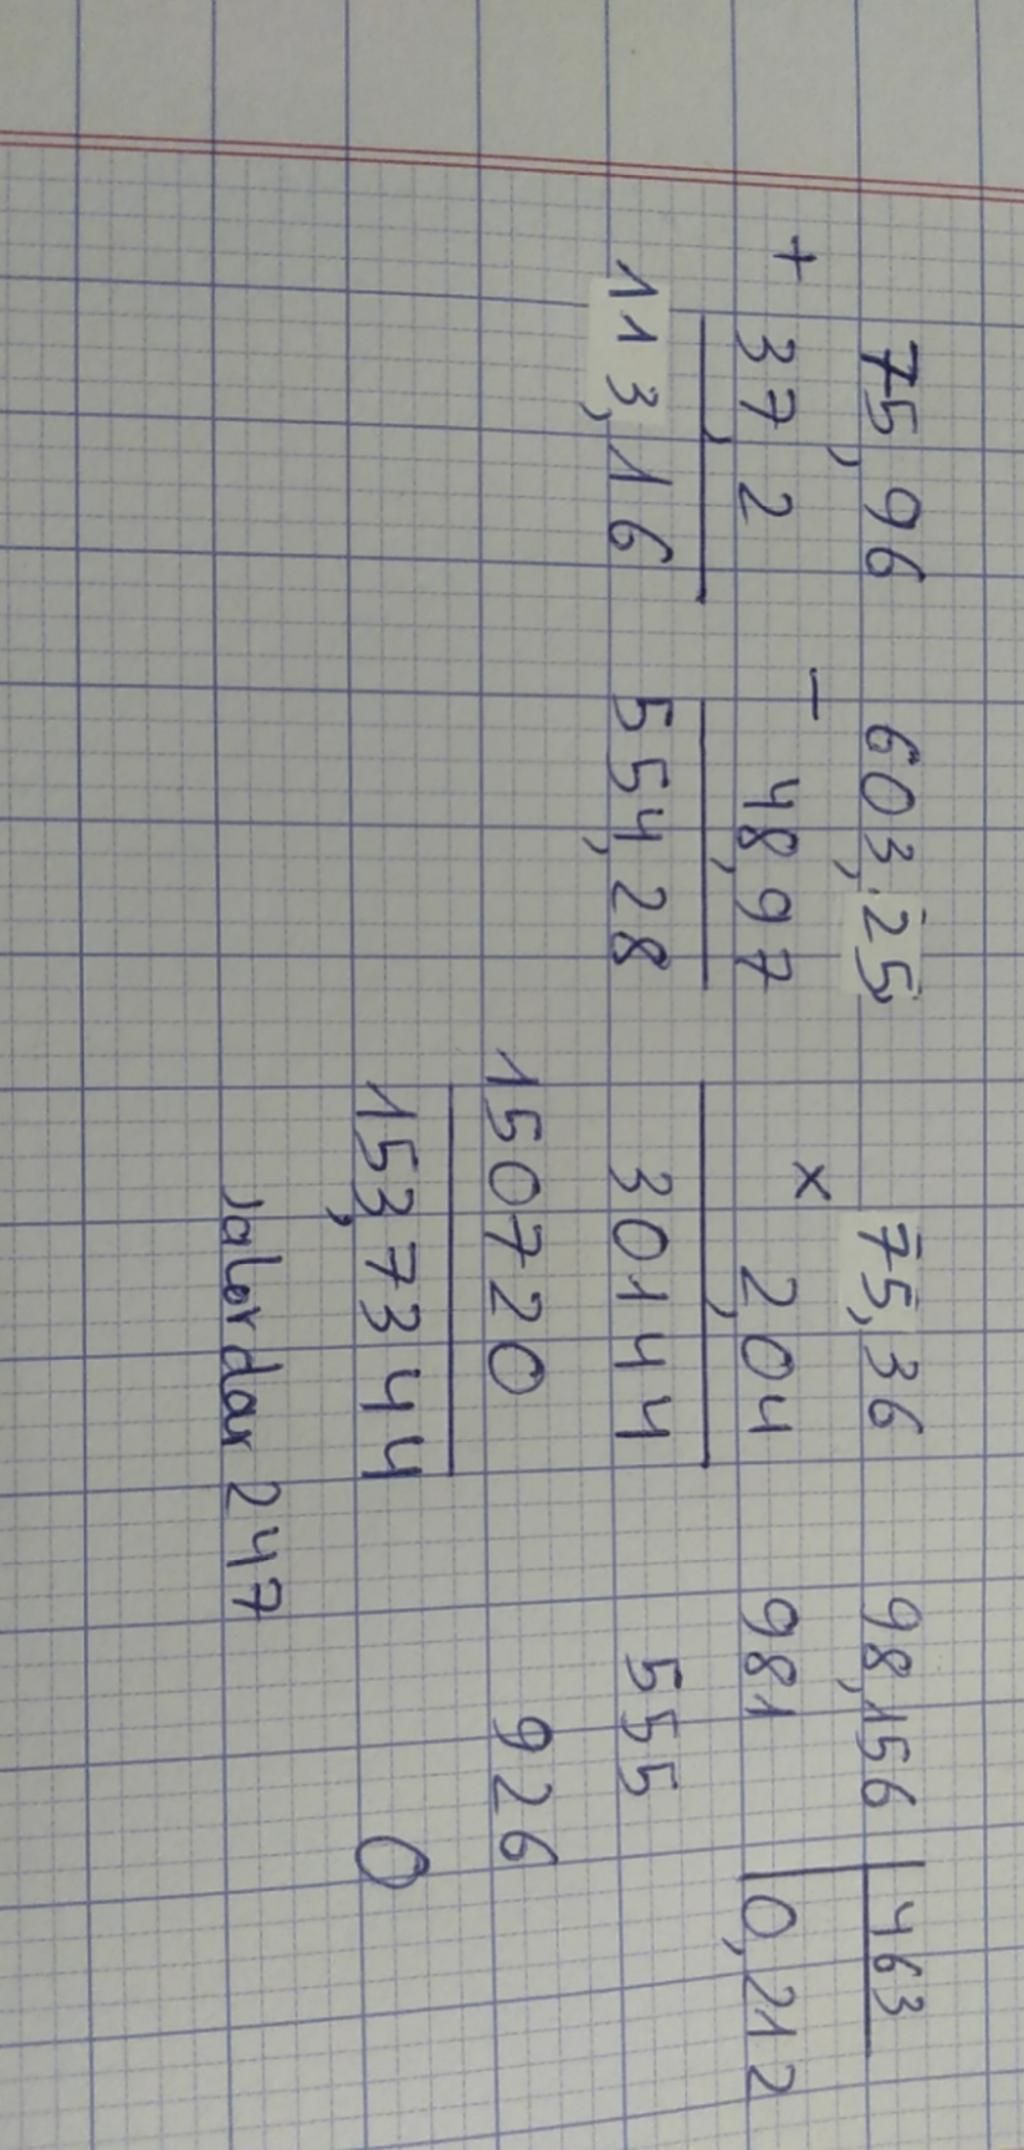 75,96
+ 37,2
113,16
603,25
- 48,97
554,28
75,36
x 2,04
30144
150720
153,7344
98,156 | 463
981 | 0,212
555
926
0
Jalordar 247